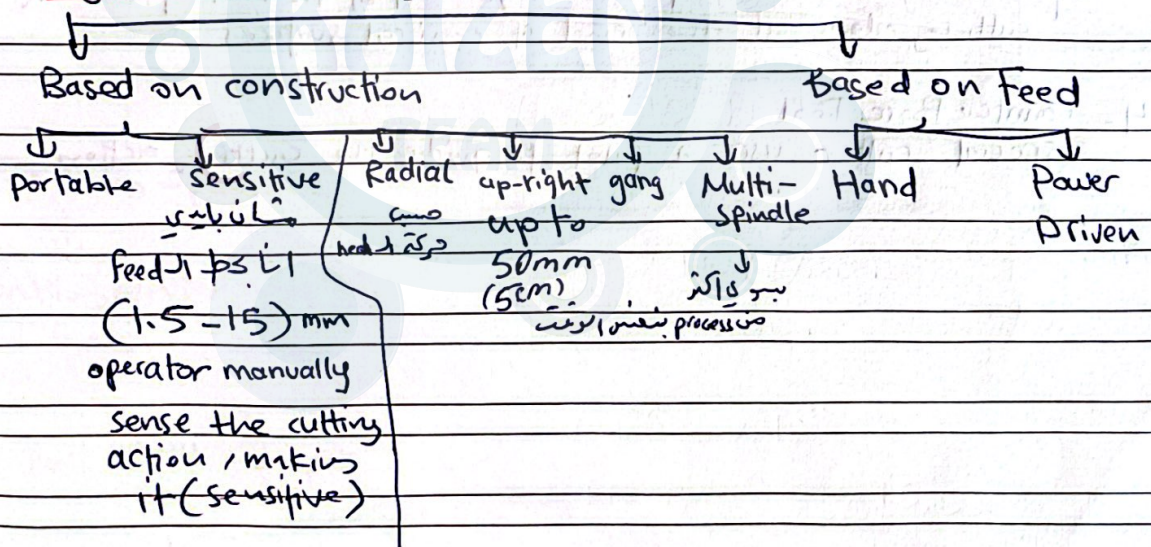 Based on construction
Based on Feed
portable
sensitive
عشان بايدي
انا بحط الـ feed
(1.5-15) mm
operator manually
sense the cutting
action, making
it (sensitive)
Radial
حسب
حركة الـ head
up-right
up to
50mm
(5cm)
gang
Multi-
spindle
بسوي اكثر
من process بنفس الوقت
Hand
Power
Driven
KAIZEN
TEAM